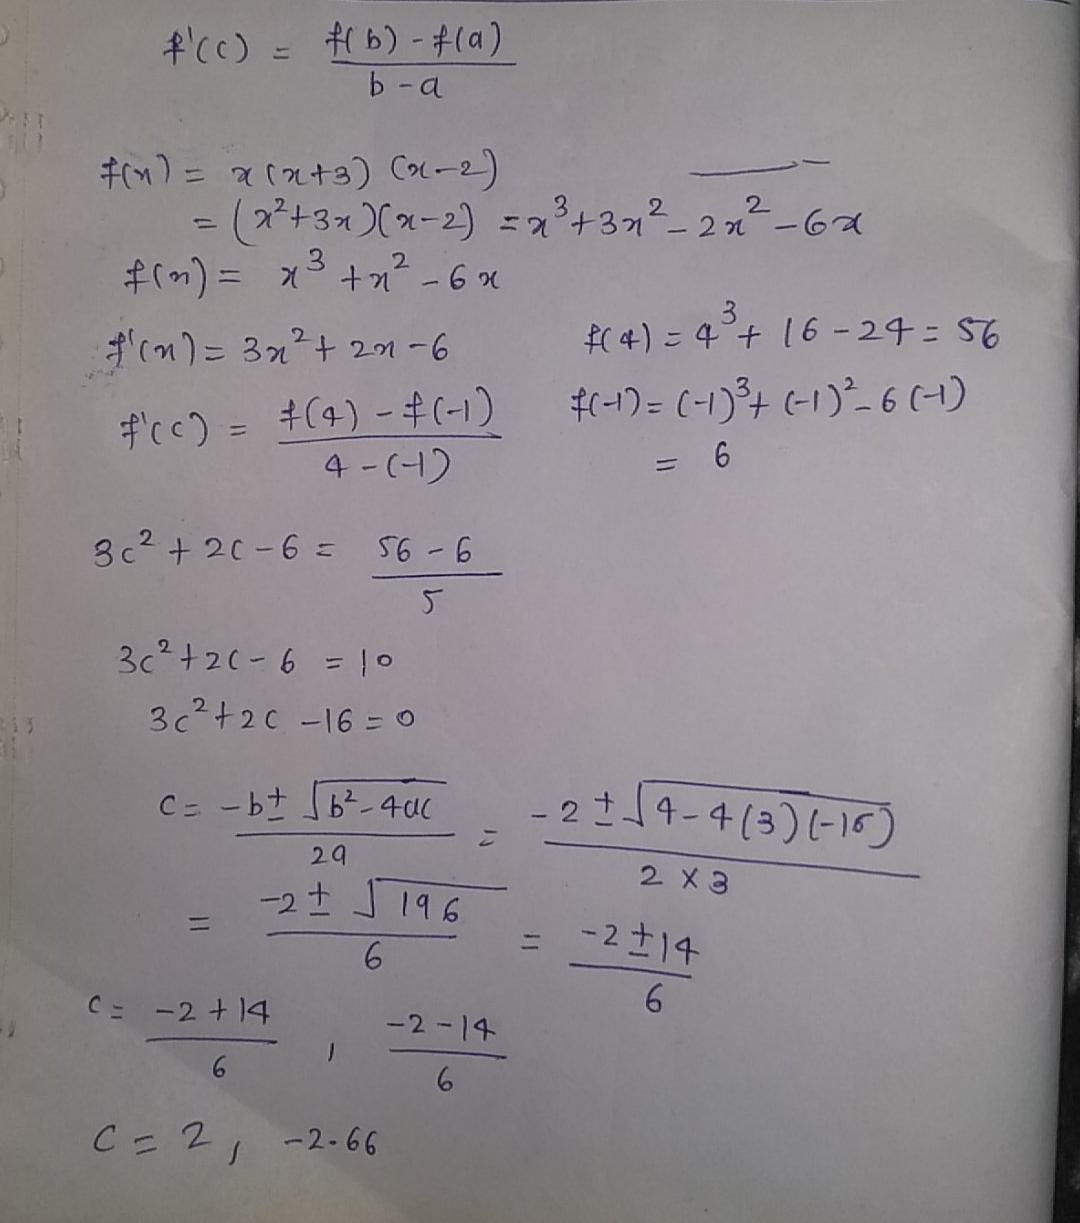 f'(c) = f(b) - f(a) / b - a
f(x) = x(x+3) (x-2)
= (x²+3x)(x-2) = x³+3x²-2x²-6x
f(x) = x³ + x² - 6x
f'(x) = 3x² + 2x - 6
f(4) = 4³ + 16 - 24 = 56
f'(c) = f(4) - f(-1) / 4 - (-1)
f(-1) = (-1)³ + (-1)² - 6(-1)
= 6
3c² + 2c - 6 = 56 - 6 / 5
3c² + 2c - 6 = 10
3c² + 2c - 16 = 0
c = -b ± √b² - 4ac / 2a = -2 ± √4 - 4(3)(-16) / 2 × 3
= -2 ± √196 / 6 = -2 ± 14 / 6
c = -2 + 14 / 6 , -2 - 14 / 6
c = 2, -2.66